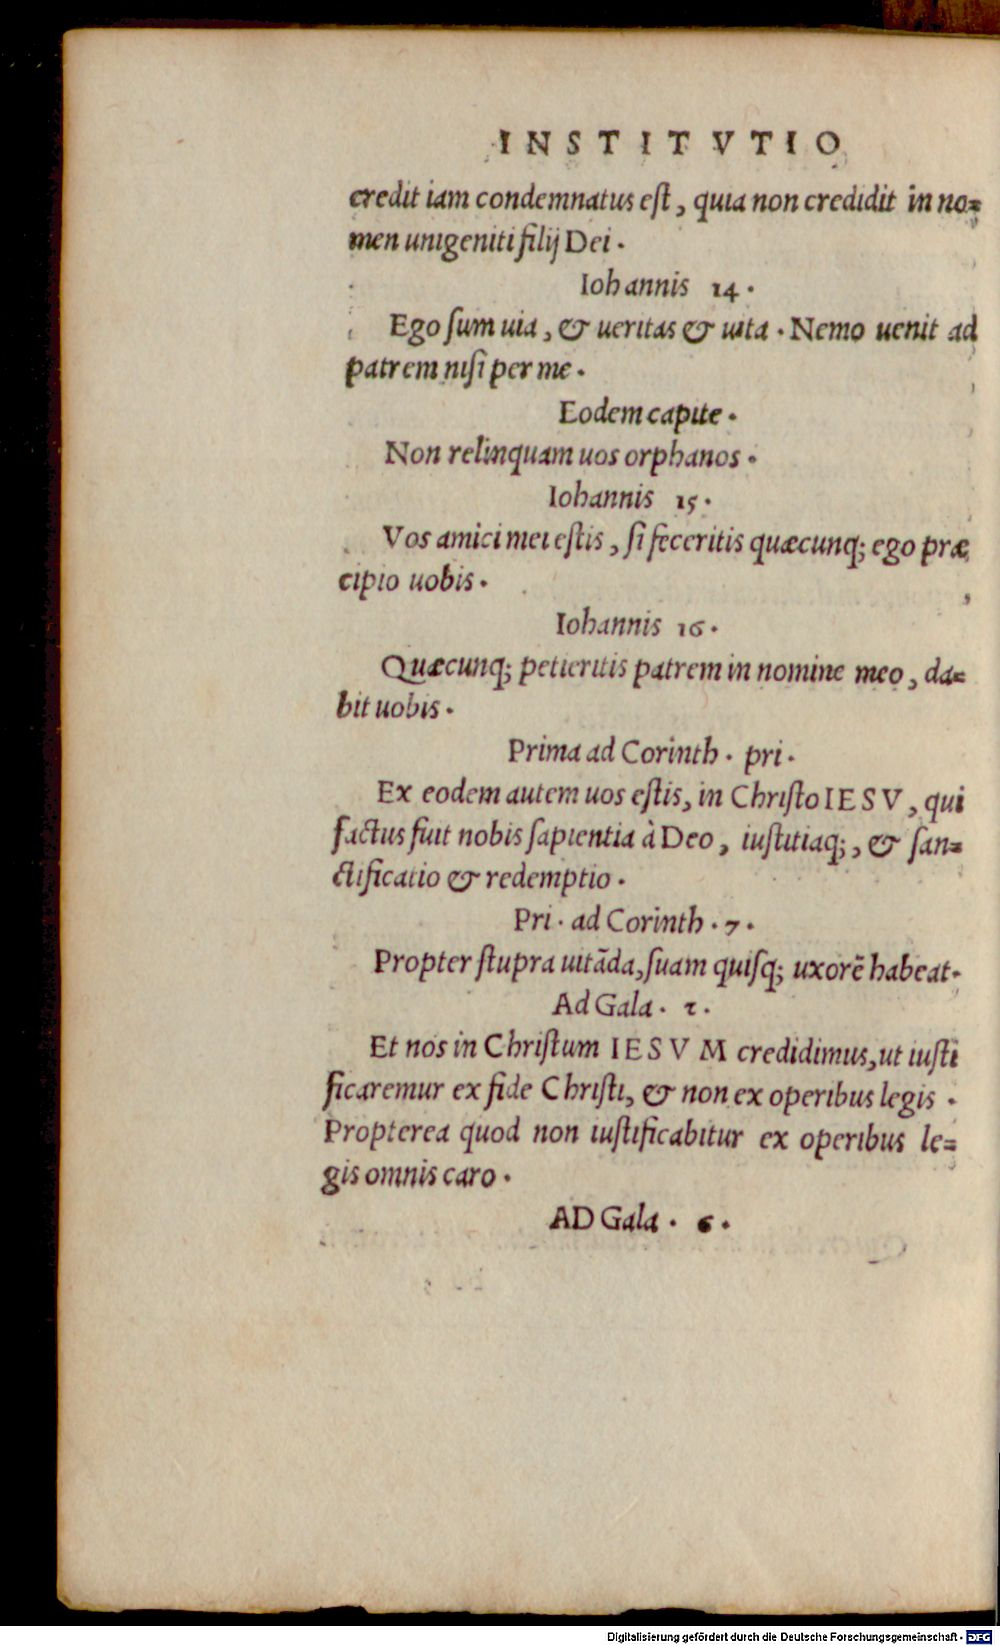 INSTITVTIO
credit iam condemnatus eſt, quia non credidit in no=
men unigeniti filij Dei.
Iohannis 14.
Ego ſum uia, & ueritas & uita. Nemo uenit ad
patrem niſi per me.
Eodem capite.
Non relinquam uos orphanos.
Iohannis 15.
Vos amici mei eſtis, ſi feceritis quæcunq; ego præ
cipio uobis.
Iohannis 16.
Quæcunq; petieritis patrem in nomine meo, da=
bit uobis.
Prima ad Corinth. pri.
Ex eodem autem uos eſtis, in Chriſto IESV, qui
factus fuit nobis ſapientia à Deo, iuſtitiaq;, & ſan=
ctificatio & redemptio.
Pri. ad Corinth. 7.
Propter ſtupra uitãda, ſuam quiſq; uxorẽ habeat.
Ad Gala. 2.
Et nos in Chriſtum IESVM credidimus, ut iuſti
ficaremur ex fide Chriſti, & non ex operibus legis.
Propterea quod non iuſtificabitur ex operibus le=
gis omnis caro.
AD Gala. 6.
Digitalisierung gefördert durch die Deutsche Forschungsgemeinschaft - DFG